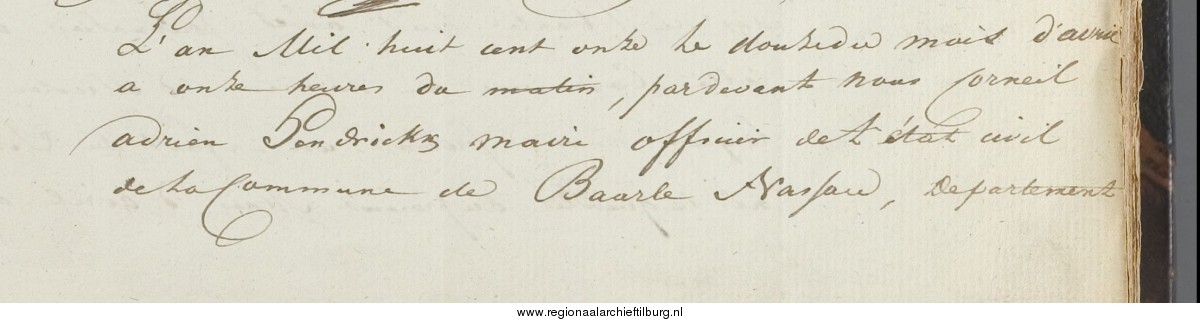 L'an Mil huit cent onze le douze du mois d'avril
a onze heures du matin, pardevant nous Corneil
adrien Hendrickx maire officier de l'état civil
de la Commune de Baarle Nassau, departement
www.regionaalarchieftilburg.nl